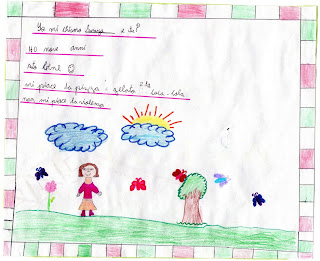 Io mi chiamo e tu?
HO nove anni
mi piace la pizza i gelato e la coca-cola
non mi piace la violenza